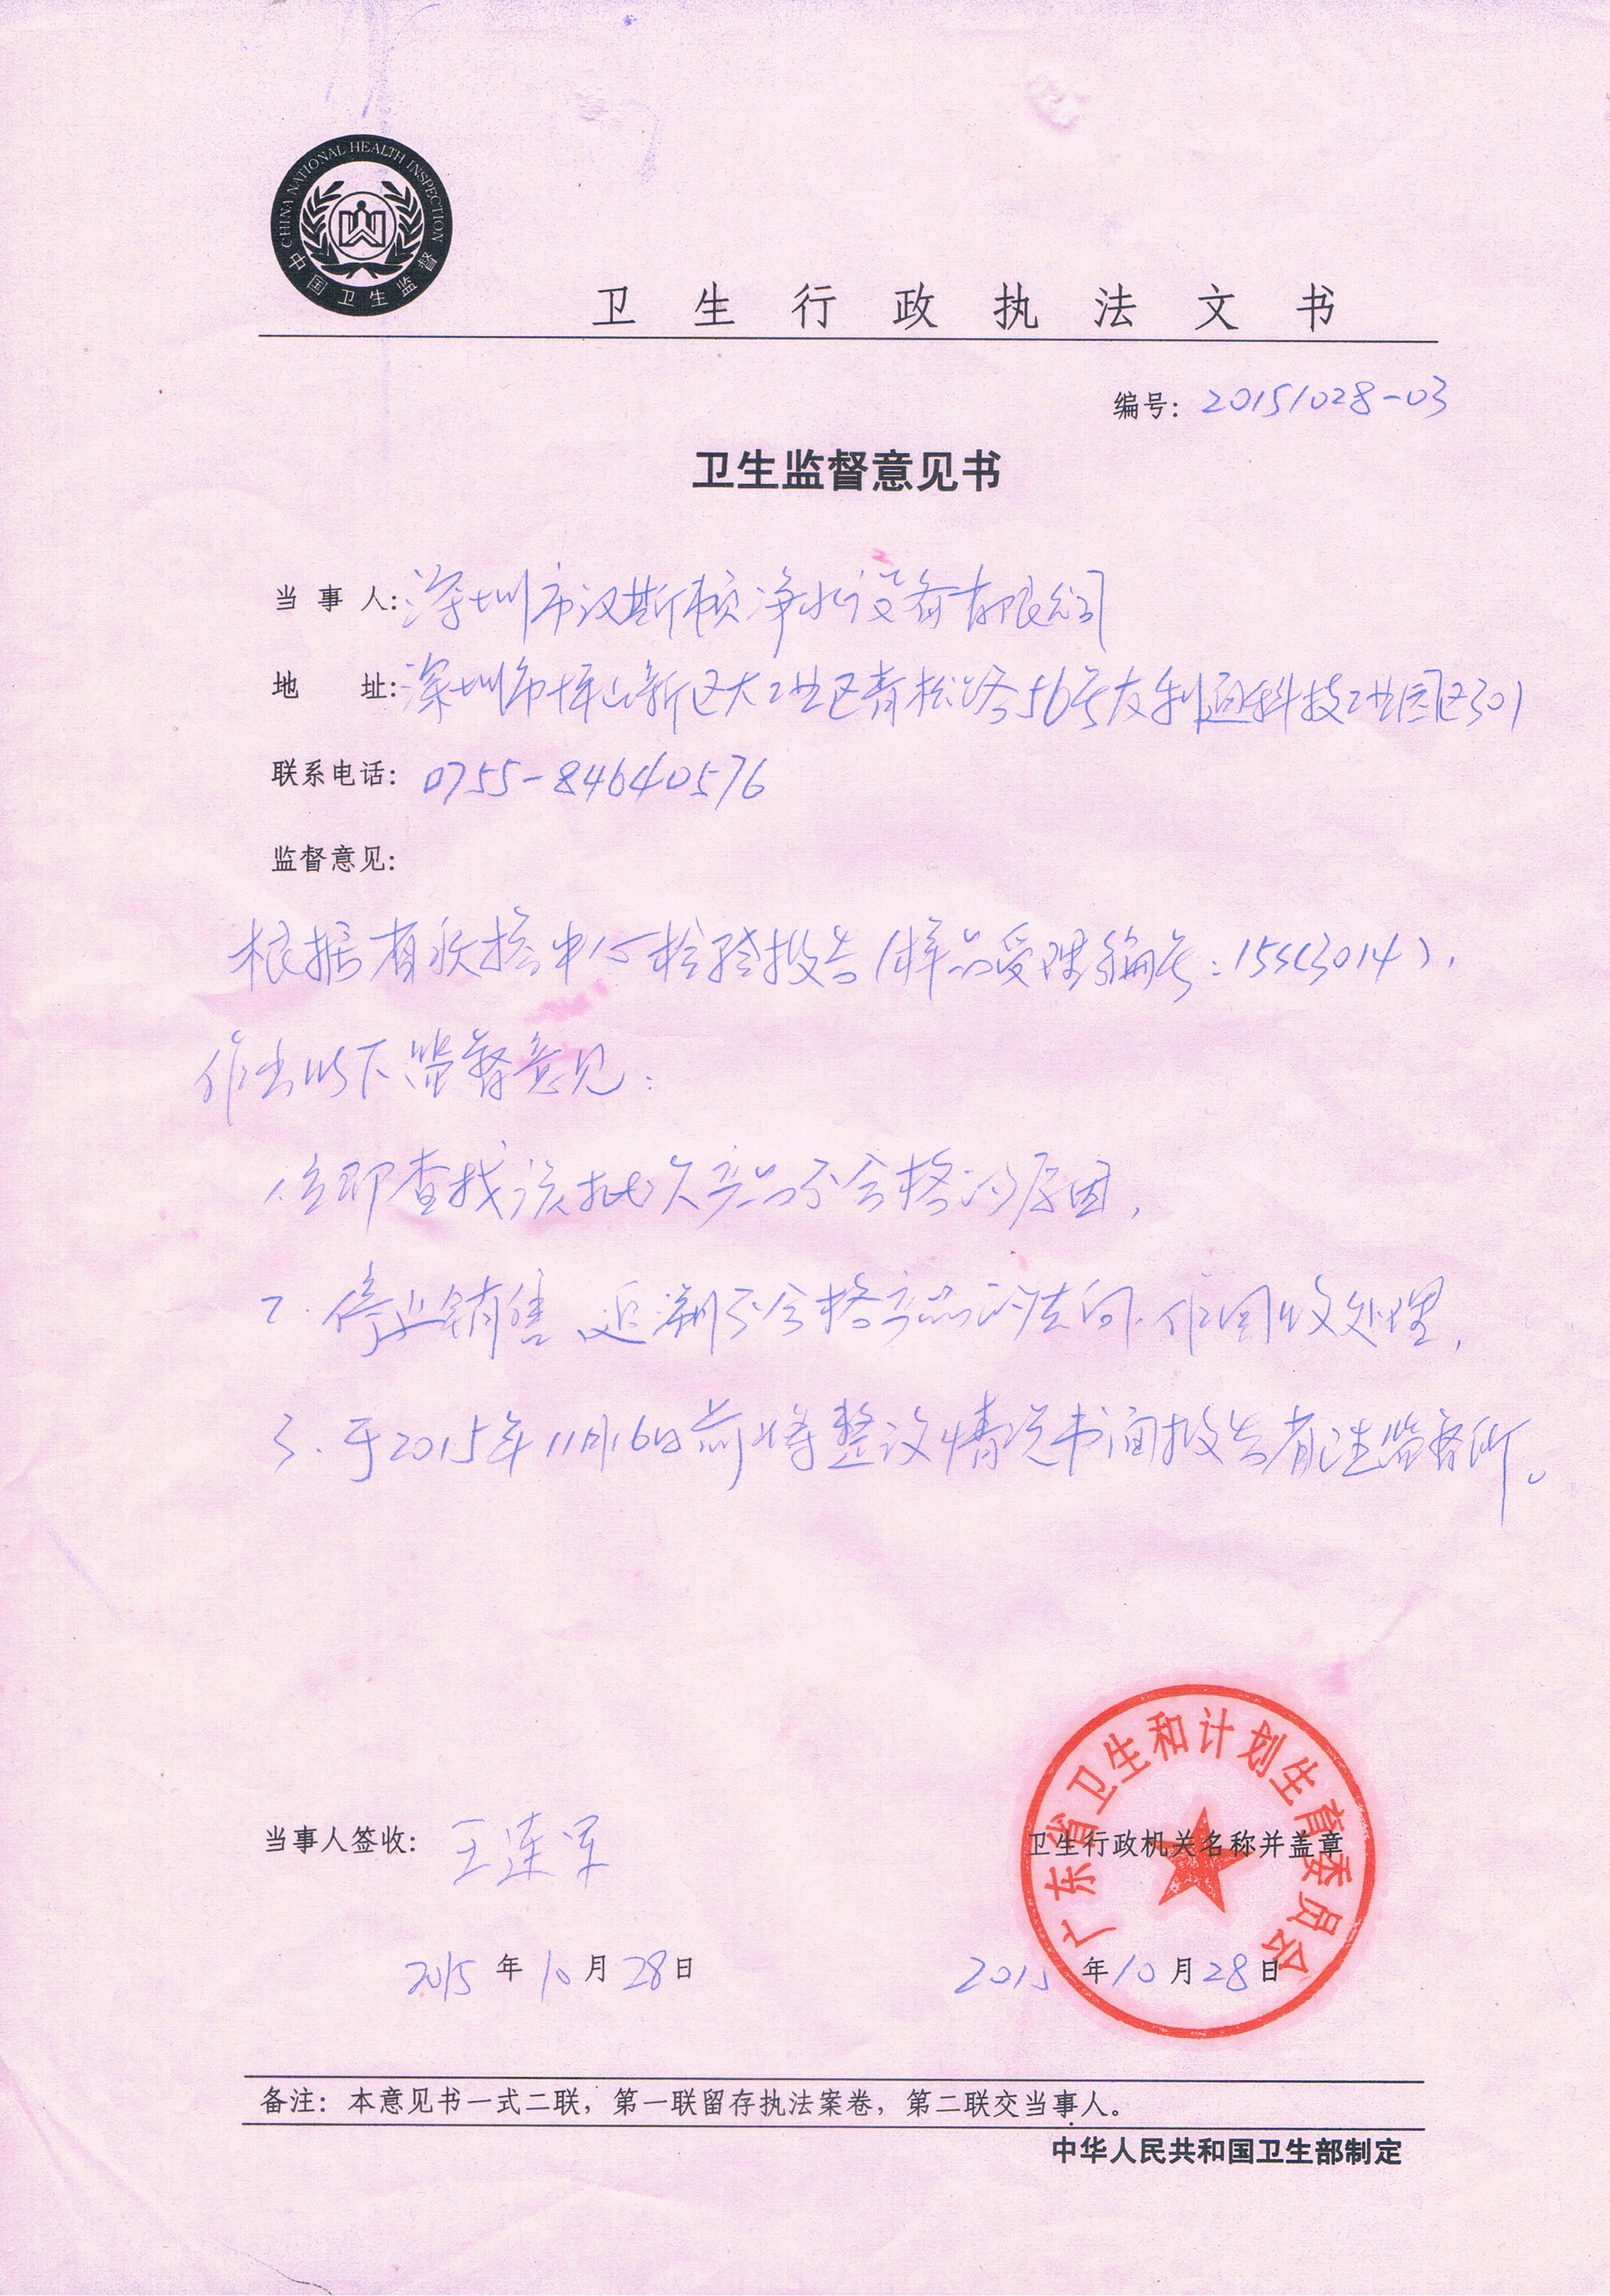 CHINA NATIONAL HEALTH INSPECTION
中国卫生监督
卫生行政执法文书
编号: 20151028-03
卫生监督意见书
当事人: 深圳市汉斯顿净水设备有限公司
地址: 深圳市坪山新区大工业区青松路56号友利通科技工业园区301
联系电话: 0755-84640576
监督意见:
根据省疾控中心检验报告(样品受理编号: 15SC3014),
作出以下监督意见:
1.立即查找该批次产品不合格的原因,
2.停止销售、追溯不合格产品的去向.作回收处理,
3.于2015年11月16日前将整改情况书面报告省卫生监督所。
广东省卫生和计划生育委员会
当事人签收: 王连军
卫生行政机关名称并盖章
2015年10月28日
2015年10月28日
备注: 本意见书一式二联, 第一联留存执法案卷, 第二联交当事人。
中华人民共和国卫生部制定